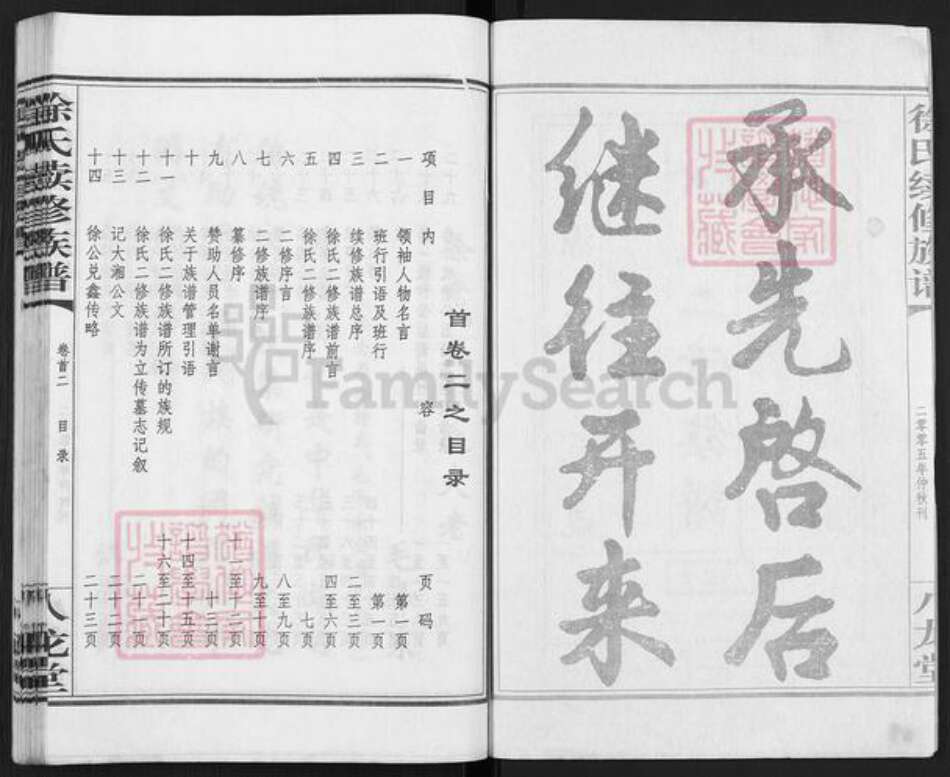 徐氏续修族谱
二零零五年仲秋刊
八龙堂
承先启后
继往开来
首卷二之目录
项目 内容 页码
一 领袖人物名言 第一页
二 班行引语及班行 第一页
三 续修族谱总序 二至三页
四 徐氏二修族谱前言 四至六页
五 徐氏二修族谱序 七页
六 二修序言 八至九页
七 二修族谱序 九至十页
八 纂修序 十一至十二页
九 赞助人员名单谢言 十三页
十 关于族谱管理引语 十四至十五页
十一 徐氏二修族谱所订的族规 十六至二十页
十二 徐氏二修族谱为立传墓志记叙 二十一页
十三 记大湘公文 二十二页
十四 徐公兑鑫传略 二十三页
徐氏续修族谱
卷首二 目录
八龙堂
FamilySearch